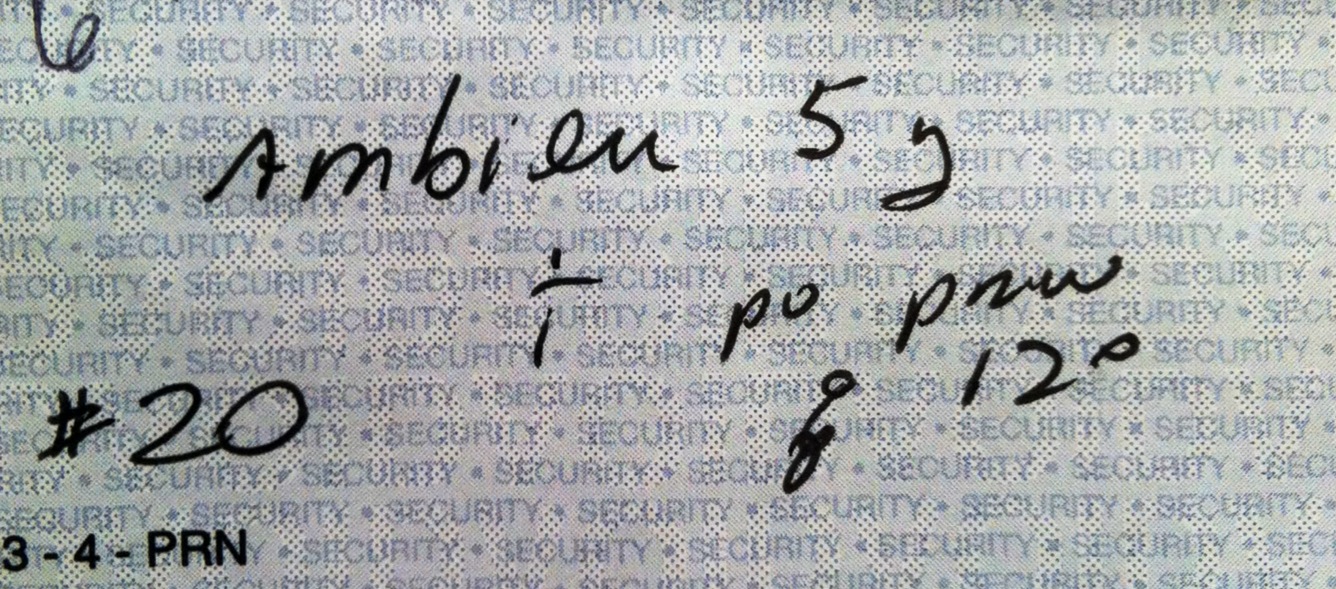 Ambien 5 g
i po prn
#20 q 12°
3 - 4 - PRN